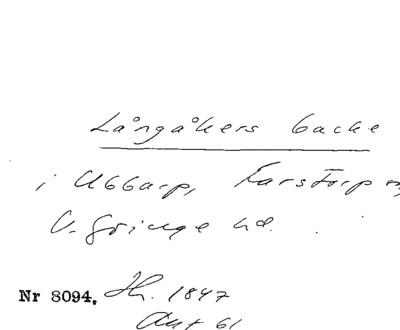 Långåkers backe
i Ubbarp, Farstorp
V. Göinge hd.
Nr 8094, Hh. 1847
Ant 61